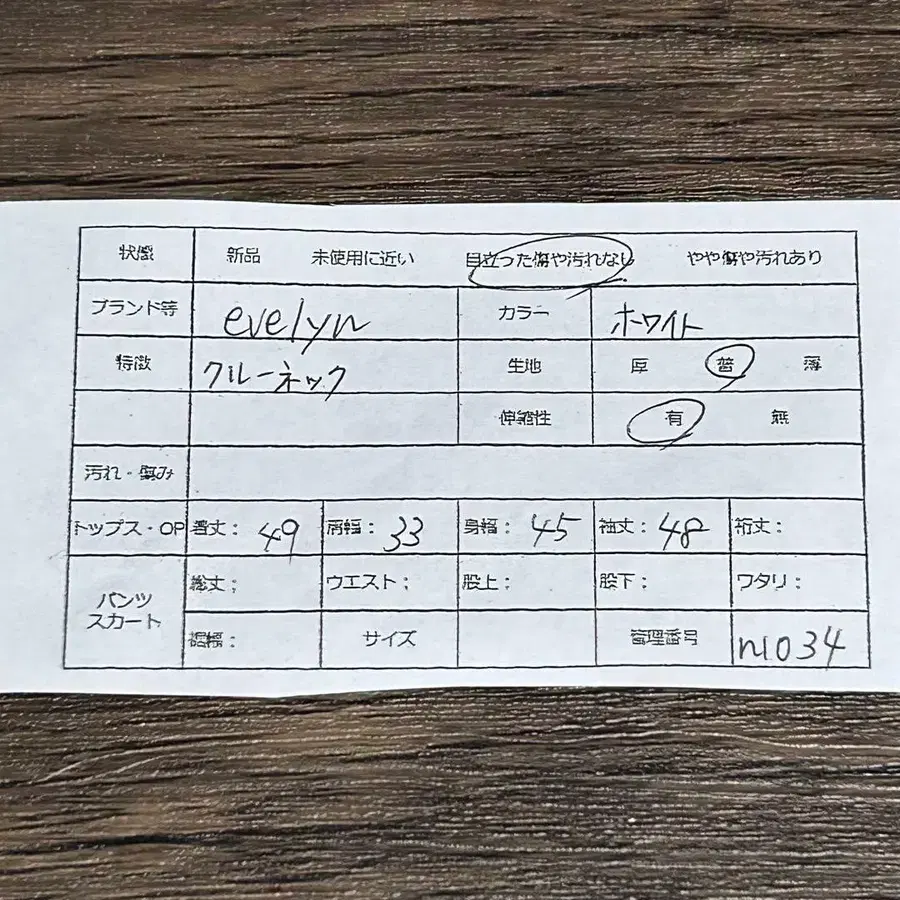 状態 新品 未使用に近い 目立った傷や汚れなし やや傷や汚れあり
ブランド等 evelyn カラー ホワイト
特徴 クルーネック 生地 厚 普 薄
伸縮性 有 無
汚れ・傷み
トップス・OP 着丈: 49 肩幅: 33 身幅: 45 袖丈: 48 裄丈:
パンツ スカート 総丈: ウエスト: 股上: 股下: ワタリ:
裾幅: サイズ 管理番号 n1034